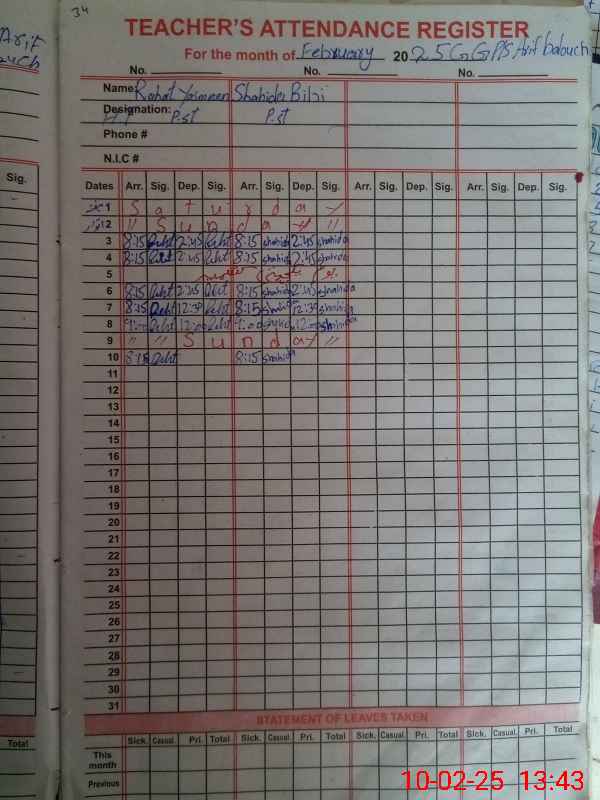 34
TEACHER'S ATTENDANCE REGISTER
For the month of February 2025 GGP/S Arif baluch
No. No. No.
Name: Rahat Yasmeen Shahida Bibi
Designation: P.st P.st
Phone #
N.I.C #
Dates Arr. Sig. Dep. Sig. Arr. Sig. Dep. Sig. Arr. Sig. Dep. Sig. Arr. Sig. Dep. Sig.
1 S a t u r d a y
2 " S u n d a y "
3 8:15 2:45 8:15 Shahida 2:45 Shahida
4 8:15 2:45 8:15 Shahida 2:45 Shahida
5
6 8:15 2:45 8:15 Shahida 2:45 Shahida
7 8:15 12:30 8:15 Shahida 12:30 Shahida
8 9:00 12:00 9:00 12:00 Shahida
9 " " S u n d a y "
10 8:15 8:15 Shahida
11
12
13
14
15
16
17
18
19
20
21
22
23
24
25
26
27
28
29
30
31
STATEMENT OF LEAVES TAKEN
Sick. Casual. Pri. Total Sick. Casual. Pri. Total Sick. Casual. Pri. Total Sick. Casual. Pri. Total
This month
Previous
Arif
Sig.
Total
10-02-25 13:43